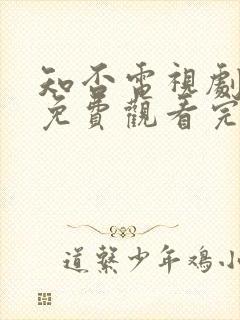 知否電視劇
免費觀看完
道繁少年鸡小